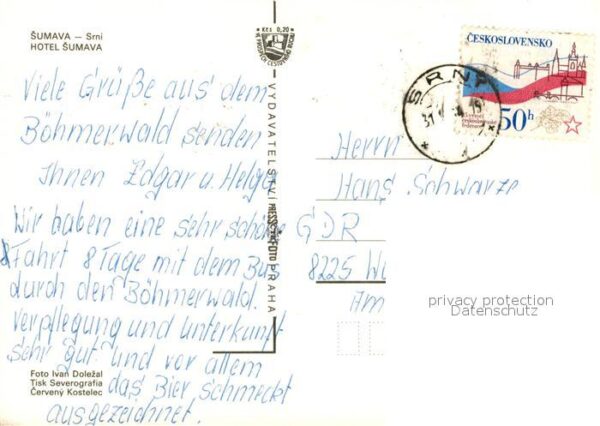 ŠUMAVA — Srní
HOTEL ŠUMAVA
Viele Grüße aus dem
Böhmerwald senden
Ihnen Edgar u. Helga
Wir haben eine sehr schöne
Fahrt 8 Tage mit dem Bus
durch den Böhmerwald.
Verpflegung und unterkunft
sehr gut und vor allem
das Bier schmeckt
ausgezeichnet.
Foto Ivan Doležal
Tisk Severografia
Červený Kostelec
Kčs 0,20
VYDAVATELSTVÍ PRESSFOTO PRAHA
ČESKOSLOVENSKO
50h
SRNÍ
Herrn
Hans Schwarze
GDR
8225
Am
privacy protection
Datenschutz